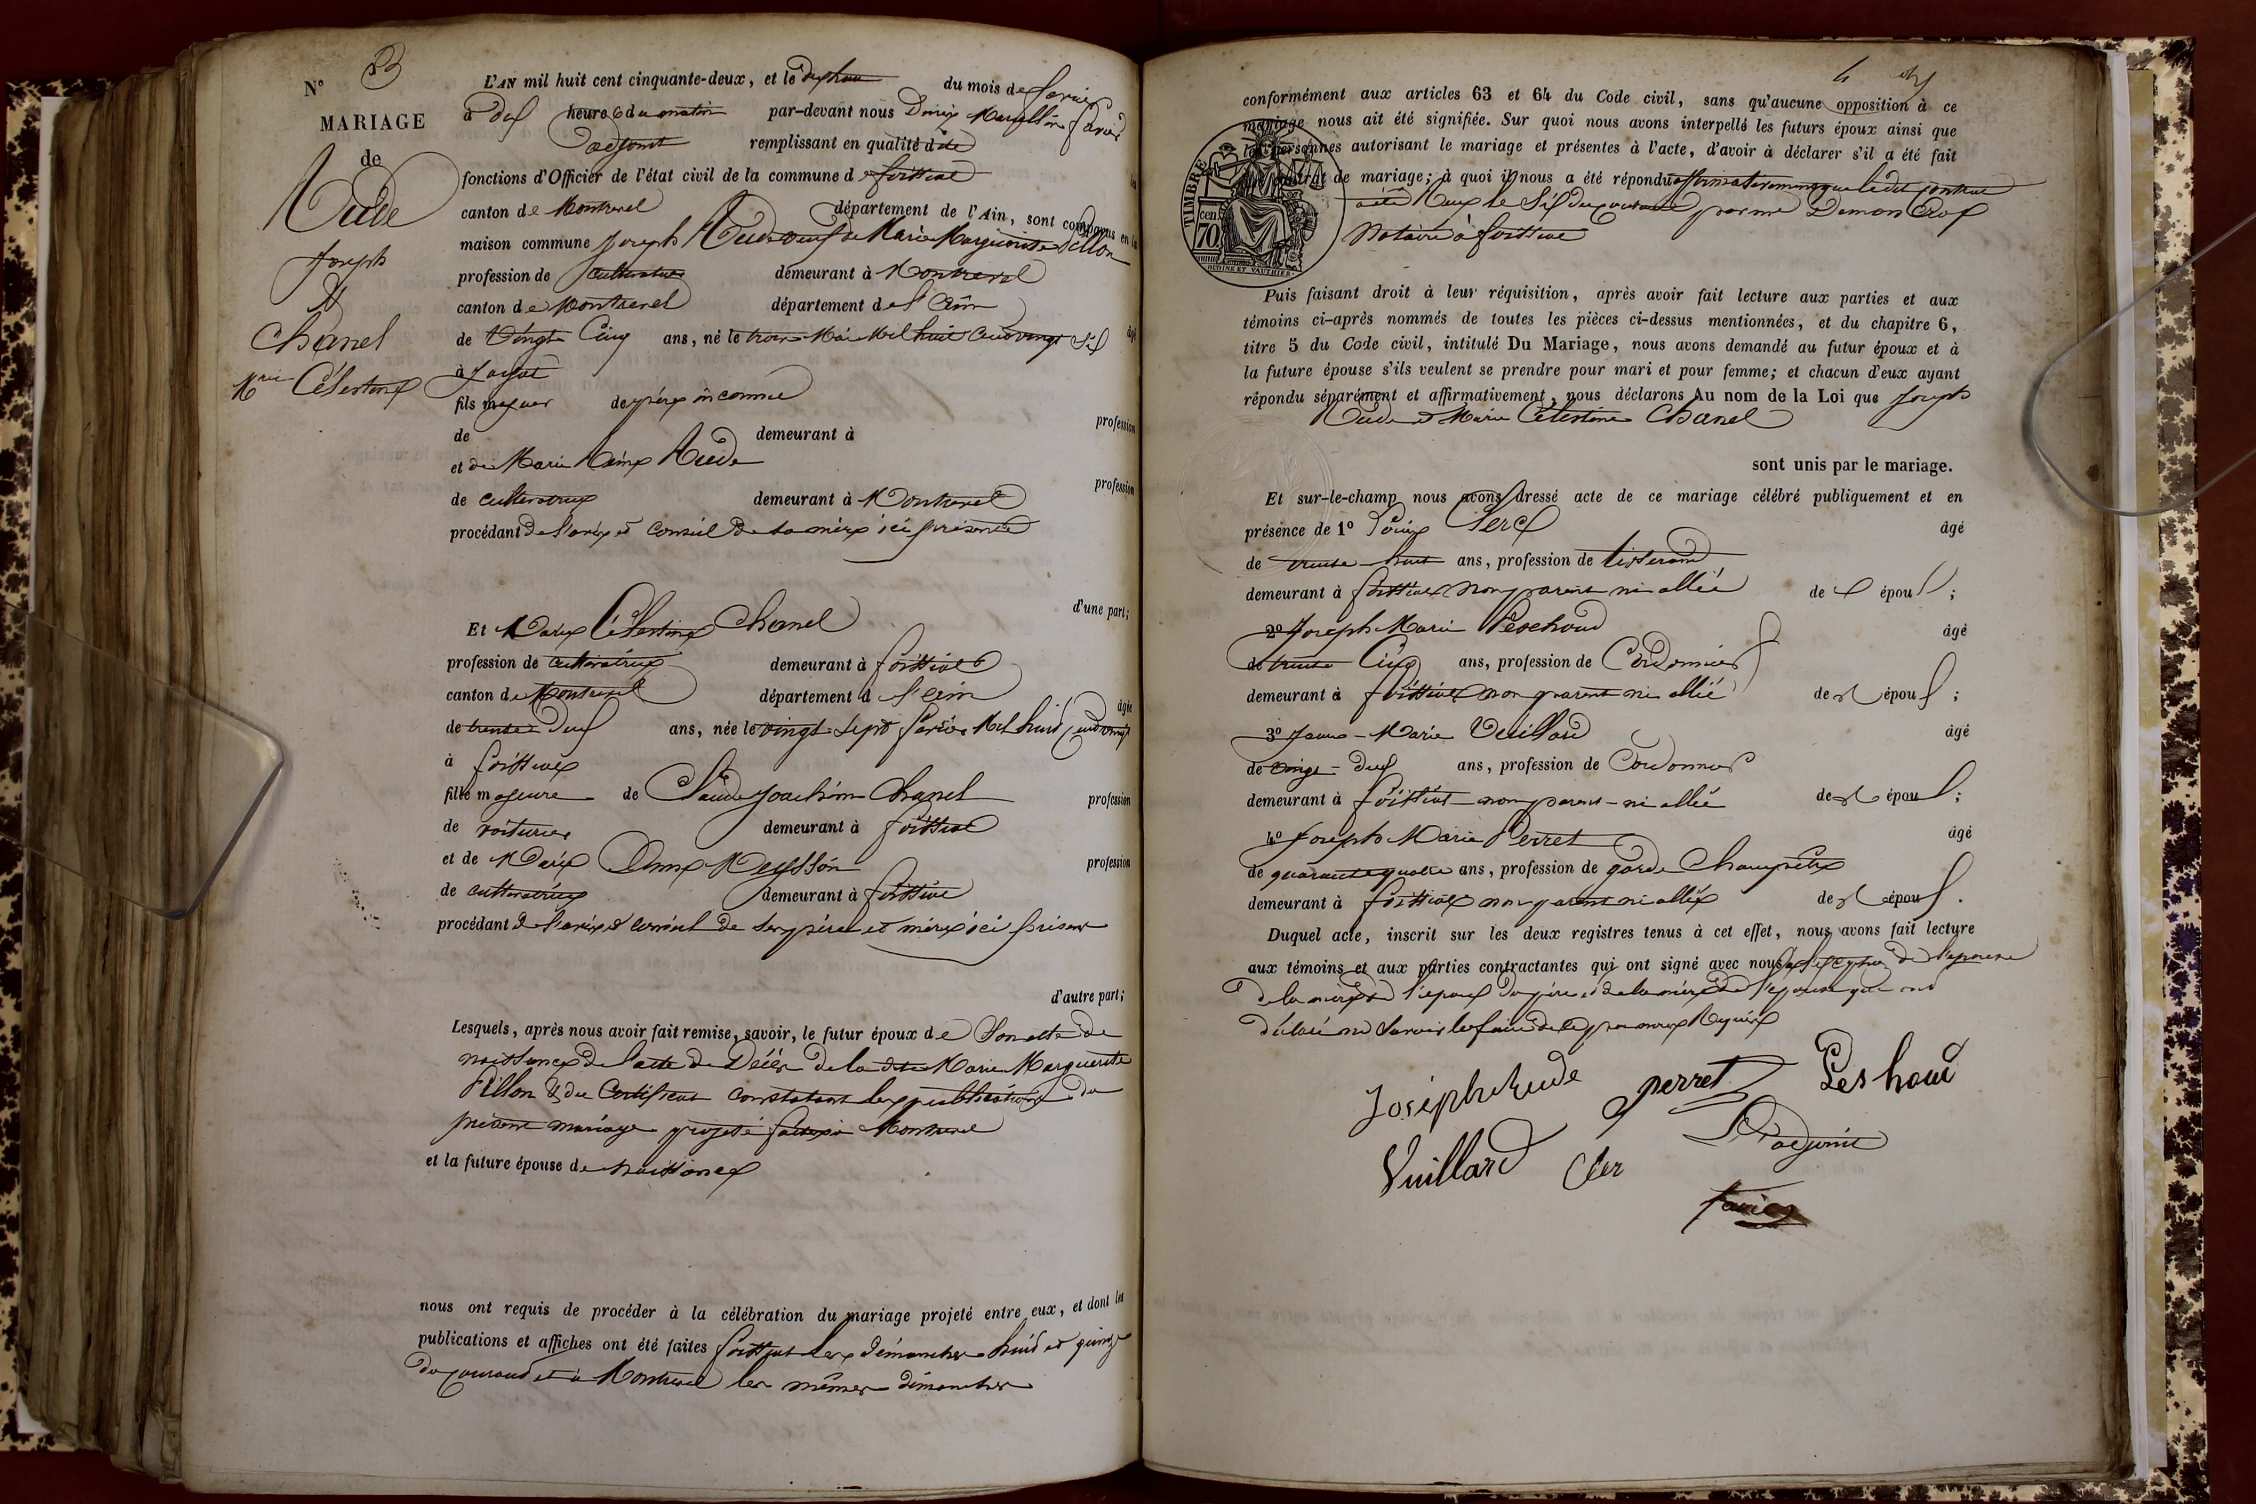 N° 3
MARIAGE
de
Rude
Joseph
&
Chanel
Mrie Célestine
L'AN mil huit cent cinquante-deux, et le dix huit du mois de fevrier
à dix heures du matin par-devant nous Denis Marcellin favier
adjoint remplissant en qualité de
fonctions d'Officier de l'état civil de la commune de foissiat
canton de Montrevel département de l'Ain, sont comparus en la
maison commune Joseph Rude veuf de Marie Marguerite Pillon
profession de cultivateur demeurant à Montrevel
canton de Montrevel département de l'Ain âgé
de Vingt Cinq ans, né le trois Mai Mil huit Cent vingt Six
à Jayat
fils majeur de père inconnu
de demeurant à profession
et de Marie Aimée Rude
de cultivatrice demeurant à Montrevel profession
procédant de l'avis et conseil de sa mère ici présente
d'une part;
Et Marie Célestine Chanel
profession de cultivatrice demeurant à foissiat
canton de Montrevel département de l'ain âgée
de trente Deux ans, née le vingt sept fevrier Mil huit Cent vingt
à foissiat
fille majeure de Claude Joachim Chanel profession
de voiturier demeurant à foissiat
et de Marie Anne Meysson profession
de cultivatrice demeurant à foissiat
procédant de l'avis et conseil de ses père et mère ici présens
d'autre part;
Lesquels, après nous avoir fait remise, savoir, le futur époux de Son acte de
naissance de l'acte de Décès de la dite Marie Marguerite
Pillon & du Certificat constatant les publications du
présent mariage projeté faites à Montrevel
et la future épouse de naissance
nous ont requis de procéder à la célébration du mariage projeté entre eux, et dont les
publications et affiches ont été faites foissiat les dimanches huit et quinze
du courant et à Montrevel les mêmes dimanches
4
conformément aux articles 63 et 64 du Code civil, sans qu'aucune opposition à ce
mariage nous ait été signifiée. Sur quoi nous avons interpellé les futurs époux ainsi que
les personnes autorisant le mariage et présentes à l'acte, d'avoir à déclarer s'il a été fait
contrat de mariage; à quoi il nous a été répondu affirmativement que ledit contrat
a été reçu le Six du courant par me Demon
Notaire à foissiat
TIMBRE
70 cen
OUDINE ET VAUTHIER
Puis faisant droit à leur réquisition, après avoir fait lecture aux parties et aux
témoins ci-après nommés de toutes les pièces ci-dessus mentionnées, et du chapitre 6,
titre 5 du Code civil, intitulé Du Mariage, nous avons demandé au futur époux et à
la future épouse s'ils veulent se prendre pour mari et pour femme; et chacun d'eux ayant
répondu séparément et affirmativement, nous déclarons Au nom de la Loi que Joseph
Rude & Marie Célestine Chanel
sont unis par le mariage.
Et sur-le-champ nous avons dressé acte de ce mariage célébré publiquement et en
présence de 1° Clerc âgé
de trente huit ans, profession de tisserand
demeurant à foissiat non parent ni allié de époux;
2° Joseph Marie Peschoud âgé
de trente Cinq ans, profession de Cordonnier
demeurant à foissiat non parent ni allié des époux;
3° Marie Vuillard âgé
de vingt-deux ans, profession de Cordonnier
demeurant à foissiat non parent ni allié des époux;
4° Joseph Marie Perret âgé
de quarante quatre ans, profession de garde Champêtre
demeurant à foissiat non parent ni allié des époux.
Duquel acte, inscrit sur les deux registres tenus à cet effet, nous avons fait lecture
aux témoins et aux parties contractantes qui ont signé avec nous à l'exception de l'épouse
de la mère de l'époux du père et de la mère de l'épouse qui ont
déclaré ne savoir le faire de ce requis
Joseph Rude perret Peshoud
Vuillard Cler adjoint
favier